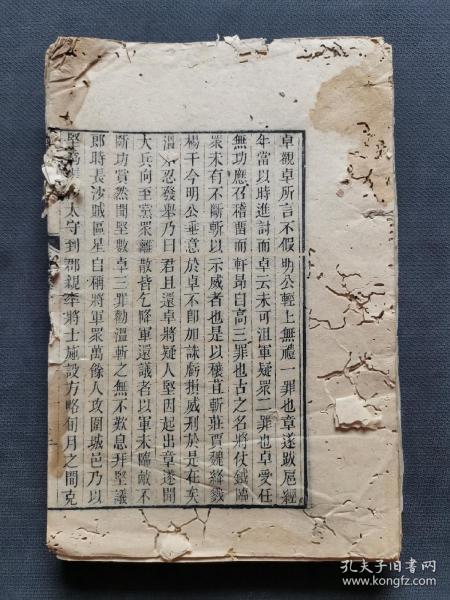 卓觀卓所言不假明公輕上無禮一罪也章遂跋扈經
年當以時進討而卓云未可沮軍疑眾二罪也卓受任
無功應召稽畱而軒昂自高三罪也古之名將仗鉞臨
眾未有不斷斬以示威者也是以穰苴斬莊賈魏絳戮
楊干今明公垂意於卓不即加誅虧損威刑於是在矣
溫不忍發舉乃曰君且還卓將疑人堅因起出章遂聞
大兵向至黨眾離散皆乞降軍還議者以軍未臨敵不
斷功賞然聞堅數卓三罪勸溫斬之無不歎息拜堅議
郎時長沙賊區星自稱將軍眾萬餘人攻圍城邑乃以
堅為太守到郡親率將士施設方略旬月之間克
孔夫子旧书网
www.kongfz.com